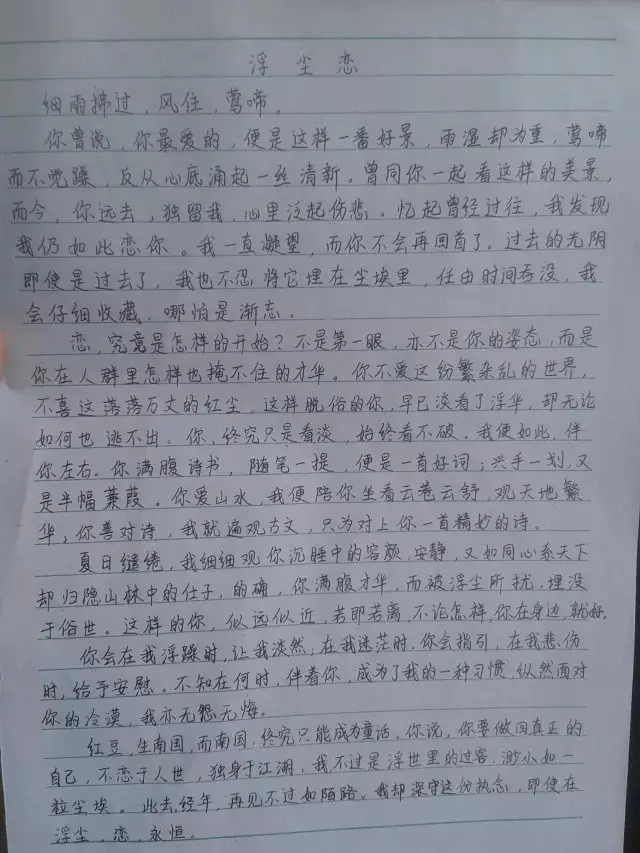 浮尘恋
细雨拂过，风住，莺啼。
你曾说，你最爱的，便是这样一番好景，雨湿却为重，莺啼
而不觉躁，反从心底涌起一丝清新。曾同你一起看这样的美景，
而今，你远去，独留我，心里泛起伤悲。忆起曾经过往，我发现
我仍如此恋你。我一直凝望，而你不会再回首了。过去的光阴
即使是过去了，我也不忍将它埋在尘埃里，任由时间吞没，我
会仔细收藏，哪怕是渐忘。
恋，究竟是怎样的开始？不是第一眼，亦不是你的姿态，而是
你在人群里怎样也掩不住的才华。你不爱这纷繁杂乱的世界，
不喜这落落万丈的红尘。这样脱俗的你，早已淡看了浮华，却无论
如何也逃不出。你，终究只是看淡，始终看不破。我便如此，伴
你左右。你满腹诗书，随笔一提，便是一首好词；兴手一划，又
是半幅蒹葭。你爱山水，我便陪你坐看云卷云舒，观天地繁
华；你善对诗，我就遍观古文，只为对上你一首精妙的诗。
夏日缱绻，我细细观你沉睡中的容颜，安静，又如同心系天下
却归隐山林中的仕子，的确，你满腹才华，而被浮尘所扰，埋没
于俗世。这样的你，似远似近，若即若离，不论怎样，你在身边，就好。
你会在我浮躁时，让我淡然；在我迷茫时，你会指引，在我悲伤
时，给予安慰。不知在何时，伴着你，成为了我的一种习惯，纵然面对
你的冷漠，我亦无怨无悔。
红豆，生南国，而南国，终究只能成为童话，你说，你要做回真正的
自己，不恋于人世，独身于江湖，我不过是浮世里的过客，渺小如一
粒尘埃。此去经年，再见不过如陌路。我却深守这份执念，即使在
浮尘，恋，永恒。